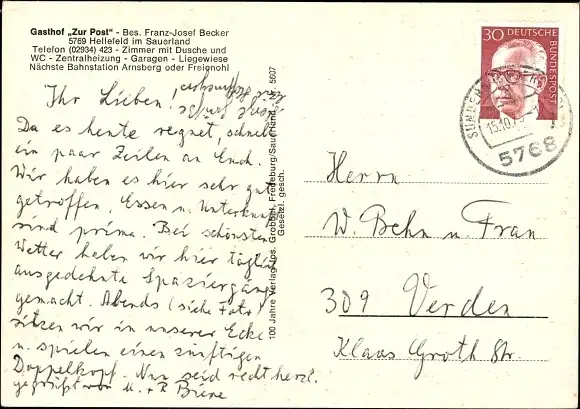 Gasthof „Zur Post" - Bes. Franz-Josef Becker
5769 Hellefeld im Sauerland
Telefon (02934) 423 - Zimmer mit Dusche und
WC - Zentralheizung - Garagen - Liegewiese
Nächste Bahnstation Arnsberg oder Freienohl
Ihr Lieben,
Da es heute regnet, schnell
ein paar Zeilen an Euch.
Wir haben es hier sehr gut
getroffen, Essen u. Unterkunft
sind prima. Bei schönstem
Wetter haben wir hier täglich
ausgedehnte Spaziergänge
gemacht. Abends (siehe Foto)
sitzen wir in unserer Ecke
u. spielen einen zünftigen
Doppelkopf. Nun seid recht herzl.
gegrüßt von
100 Jahre Verlag Jos. Grobbel, Fredeburg/Sauerland 5607
Gesetzl. gesch.
30 DEUTSCHE BUNDESPOST
SUNDERN
15.10.7
5768
Herrn
W. Behn u. Frau
309 Verden
Klaus Groth Str.